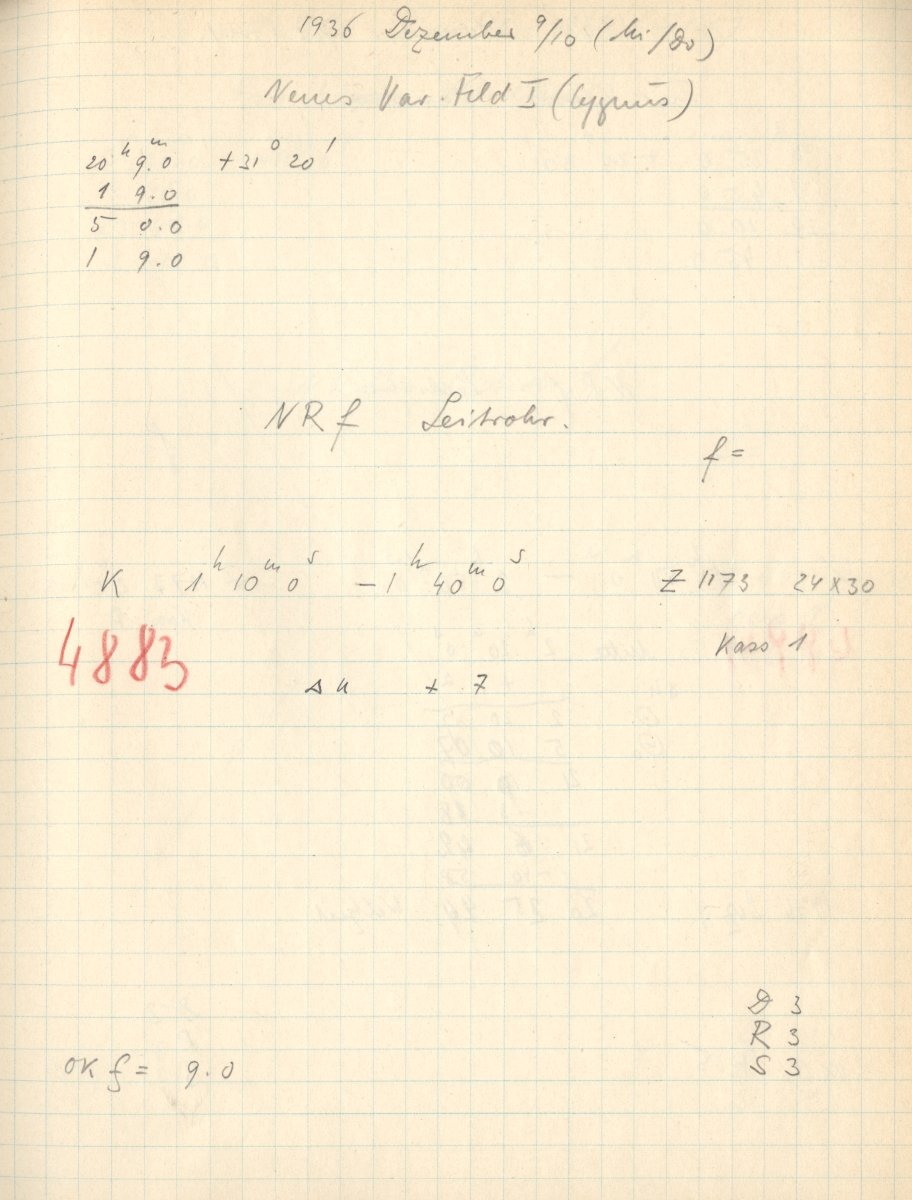 1936 Dezember 9/10 (Mi/Do)
Neues Var. Feld I (Cygnus)
20 h 9.0 m +31° 20'
1 9.0
5 0.0
1 9.0
NRf Leitrohr.
f =
K 1 h 10 m 0 s – 1 h 40 m 0 s Z 1173 24 x 30
4883 Kass 1
Δu + 7
D 3
R 3
S 3
OK f = 9.0